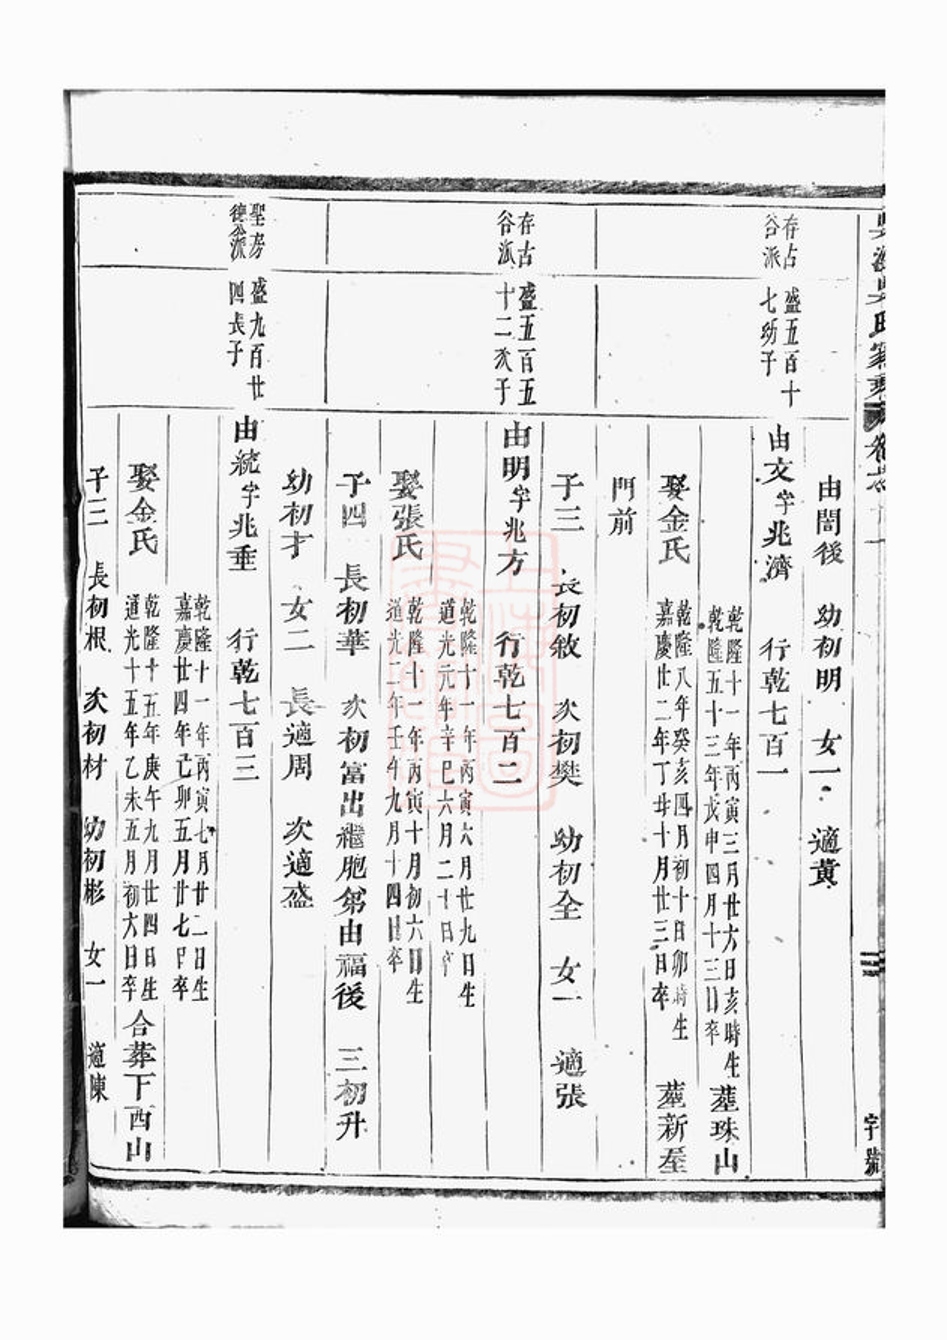 由閏後　幼初明　女一　適黃
存占
谷派
盛五百十
七幼子
由文字兆濟　行乾七百一
乾隆十一年丙寅三月廿六日亥時生
乾隆五十三年戊申四月十三日卒
葬珠山
娶金氏
乾隆八年癸亥四月初十日卯時生
嘉慶廿二年丁丑十月廿三日卒
葬新屋
門前
子三　長初敘　次初樊　幼初全　女一　適張
存古
谷派
盛五百五
十二次子
由明字兆方　行乾七百二
乾隆十一年丙寅六月廿九日生
道光元年辛巳六月二十日卒
娶張氏
乾隆十一年丙寅十月初六日生
道光二年壬午九月十四日卒
子四　長初華　次初富出繼胞弟由福後　三初升
幼初才　女二　長適周　次適盛
聖房
德公派
盛九百廿
四長子
由統字兆垂　行乾七百三
乾隆十一年丙寅七月廿二日生
嘉慶廿四年己卯五月廿七日卒
娶金氏
乾隆十五年庚午九月廿四日生
道光十五年乙未五月初六日卒
合葬下西山
子三　長初根　次初材　幼初彬　女一　適陳
氏家乘
字號